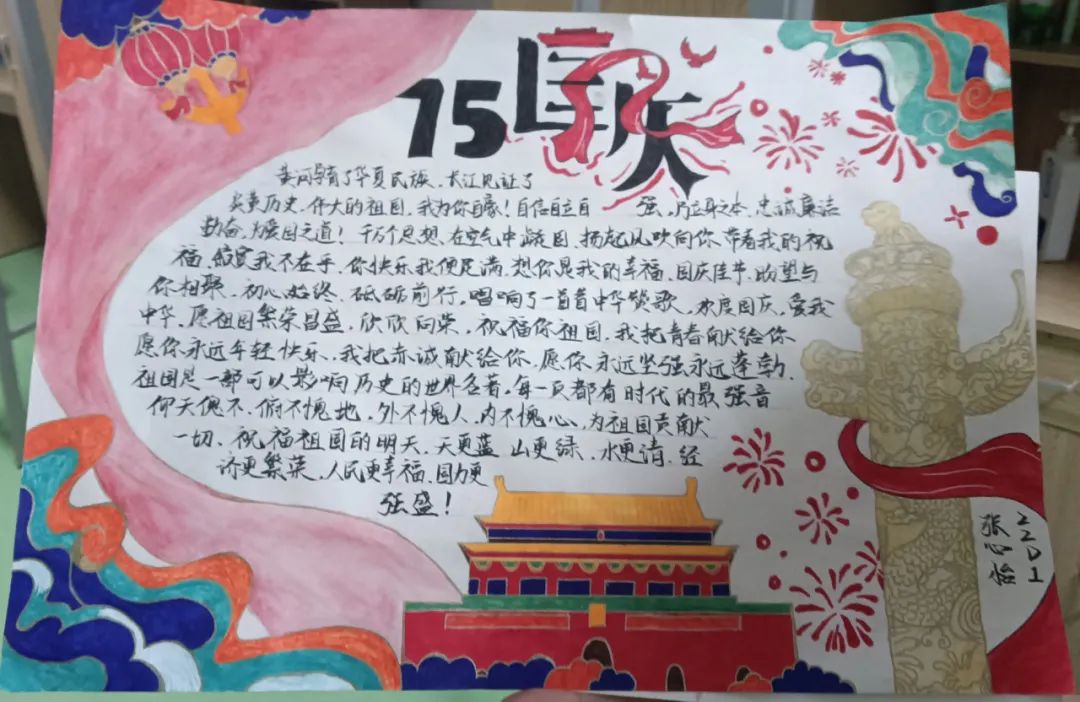 75国庆
黄河孕育了华夏民族、长江见证了
炎黄历史、伟大的祖国,我为你自豪!自信自立自强,乃立身之本、忠诚廉洁
勤奋、为爱国之道!千万个思想、在空气中凝固、扬起风吹向你、带着我的祝
福、我不在乎、你快乐我便足满、想你是我的幸福、国庆佳节、盼望与
你相聚、初心始终、砥砺前行、唱响了一首首中华赞歌、欢度国庆、爱我
中华、愿祖国繁荣昌盛、欣欣向荣、祝福你祖国、我把青春献给你
愿你永远年轻快乐、我把赤诚献给你、愿你永远坚强永远蓬勃、
祖国是一部可以影响历史的世界名著、每一页都有时代的最强音
仰天愧不、俯不愧地、外不愧人、内不愧心、为祖国贡献
一切、祝福祖国的明天、天更蓝 山更绿、水更清、经
济更繁荣、人民更幸福、国力更
强盛!
2201
张心怡